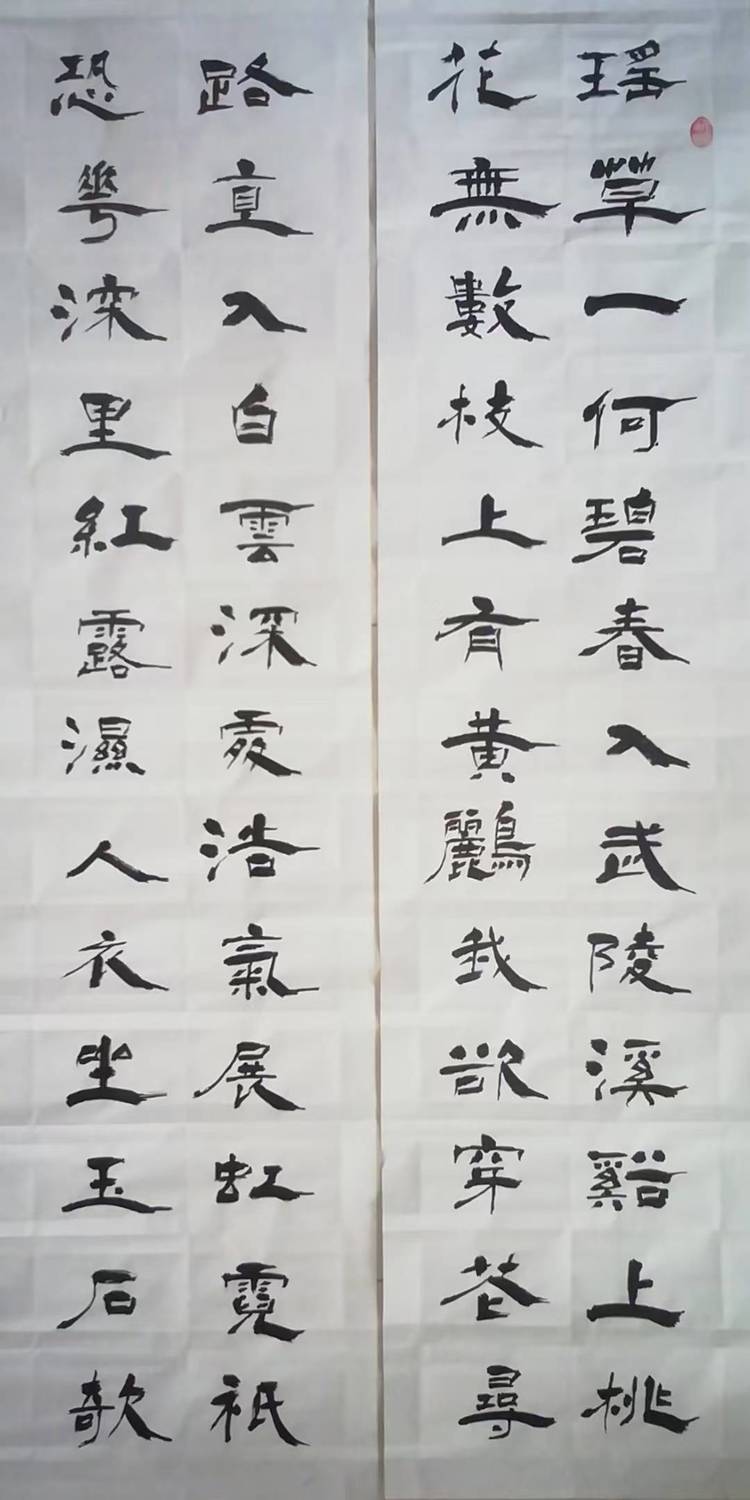 瑶草一何碧春入武陵溪谿上桃
花無數枝上有黄鸝我欲穿花尋
路直入白雲深處浩氣展虹霓祇
恐花深里紅露濕人衣坐玉石欹